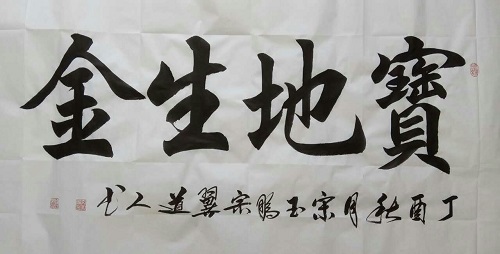 寶地生金
丁酉秋月宗玉鵬宗翼道人书